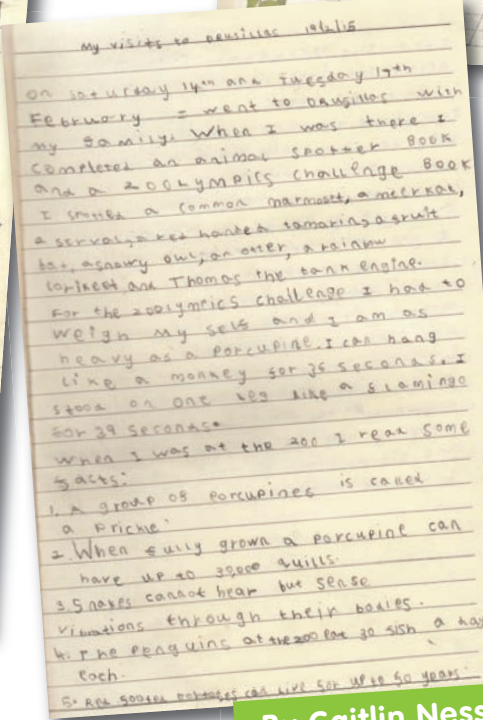 My visits to Drusillas 19/2/15
on saturday 14th and Tuesday 17th
February I went to Drusillas with
my family. When I was there I
completed an animal spotter BOOK
and a ZOOLYMPICS challenge BOOK
I spotted a common marmoset, a meerkat,
a serval, a red handed tamarin, a fruit
bat, a snowy owl, an otter, a rainbow
lorikeet and Thomas the tank engine.
For the zoolympics challenge I had to
weigh my self and I am as
heavy as a porcupine. I can hang
like a monkey for 35 seconds. I
stood on one leg like a flamingo
for 39 seconds.
When I was at the zoo I read some
facts:
1. A group of porcupines is called
a prickle.
2. When fully grown a porcupine can
have up to 30,000 quills.
3. Snakes cannot hear but sense
vibrations through their bodies.
4. The penguins at the zoo eat 30 fish a
each.
5. Red footed tortoises can live for up to 50 years.
By Caitlin Ness